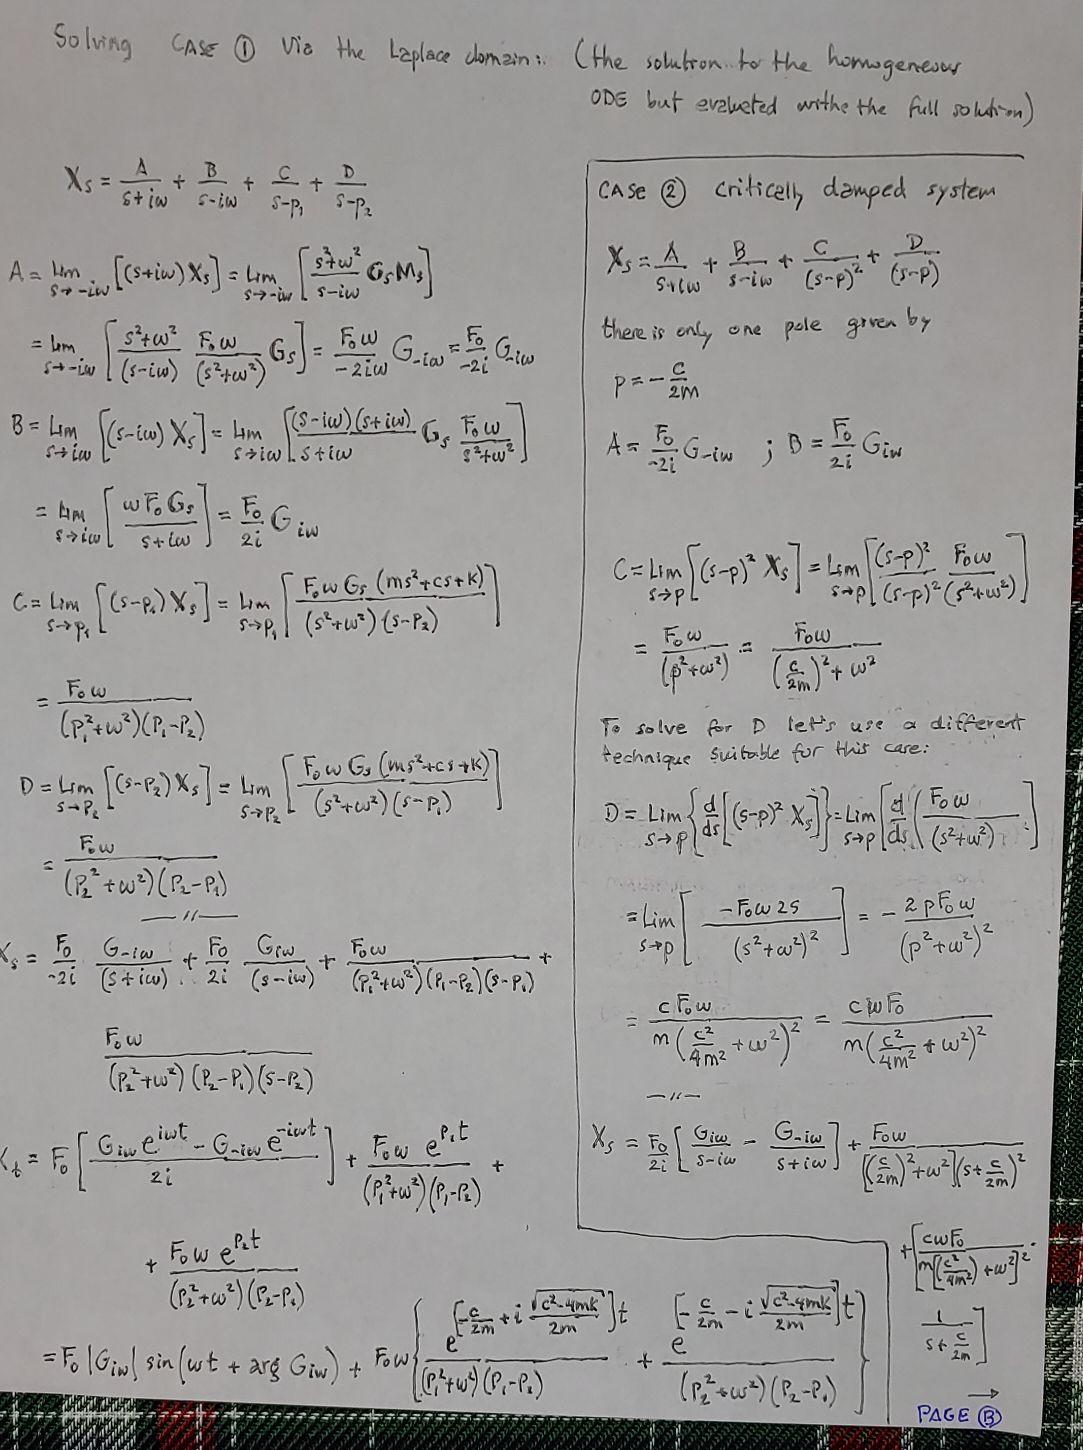 Solving CASE ① Via the Laplace domain: (the solution to the homogeneous
ODE but evaluated withe the full solution)
Xs = A/(s+iω) + B/(s-iω) + C/(s-p₁) + D/(s-p₂)
A = Lim s→-iω [(s+iω) Xs] = Lim s→-iω [(s²+ω²)/(s-iω) Gs Ms]
= Lim s→-iω [(s²+ω²)/(s-iω) F₀ω/(s²+ω²) Gs] = F₀ω/(-2iω) G-iω = F₀/(-2i) G-iω
B = Lim s→iω [(s-iω) Xs] = Lim s→iω [(s-iω)(s+iω)/(s+iω) Gs F₀ω/(s²+ω²)]
= Lim s→iω [ωF₀Gs/(s+iω)] = F₀/(2i) Giω
C = Lim s→p₁ [(s-p₁) Xs] = Lim s→p₁ [F₀ω Gs (ms²+cs+k)/((s²+ω²)(s-p₂))]
= F₀ω/((p₁²+ω²)(p₁-p₂))
D = Lim s→p₂ [(s-p₂) Xs] = Lim s→p₂ [F₀ω Gs (ms²+cs+k)/((s²+ω²)(s-p₁))]
= F₀ω/((p₂²+ω²)(p₂-p₁))
—//—
Xs = F₀/(-2i) G-iω/(s+iω) + F₀/(2i) Giω/(s-iω) + F₀ω/((p₁²+ω²)(p₁-p₂)(s-p₁)) +
F₀ω/((p₂²+ω²)(p₂-p₁)(s-p₂))
Xt = F₀ [(Giω e^(iωt) - G-iω e^(-iωt))/(2i)] + F₀ω e^(p₁t)/((p₁²+ω²)(p₁-p₂)) +
+ F₀ω e^(p₂t)/((p₂²+ω²)(p₂-p₁))
= F₀ |Giω| sin(ωt + arg Giω) + F₀ω {e^([-c/2m + i √(c²-4mk)/2m]t)/((p₁²+ω²)(p₁-p₂)) + e^([-c/2m - i √(c²-4mk)/2m]t)/((p₂²+ω²)(p₂-p₁))}
CASE ② critically damped system
Xs = A/(s+iω) + B/(s-iω) + C/(s-p)² + D/(s-p)
there is only one pole given by
p = -c/2m
A = F₀/(-2i) G-iω ; B = F₀/(2i) Giω
C = Lim s→p [(s-p)² Xs] = Lim s→p [(s-p)²/(s-p)² F₀ω/(s²+ω²)]
= F₀ω/(p²+ω²) = F₀ω/((c/2m)²+ω²)
To solve for D let's use a different
technique suitable for this case:
D = Lim s→p {d/ds [(s-p)² Xs]} = Lim s→p [d/ds (F₀ω/(s²+ω²))]
= Lim s→p [-F₀ω2s/(s²+ω²)²] = - 2pF₀ω/(p²+ω²)²
= cF₀ω/(m(c²/4m² + ω²)²) = cωF₀/(m(c²/4m² + ω²)²)
—//—
Xs = F₀/(2i) [Giω/(s-iω) - G-iω/(s+iω)] + F₀ω/([(c/2m)²+ω²](s+c/2m)²)
+ [cωF₀/(m[(c²/4m²)+ω²]²) ·
1/(s+c/2m)]
PAGE Ⓑ